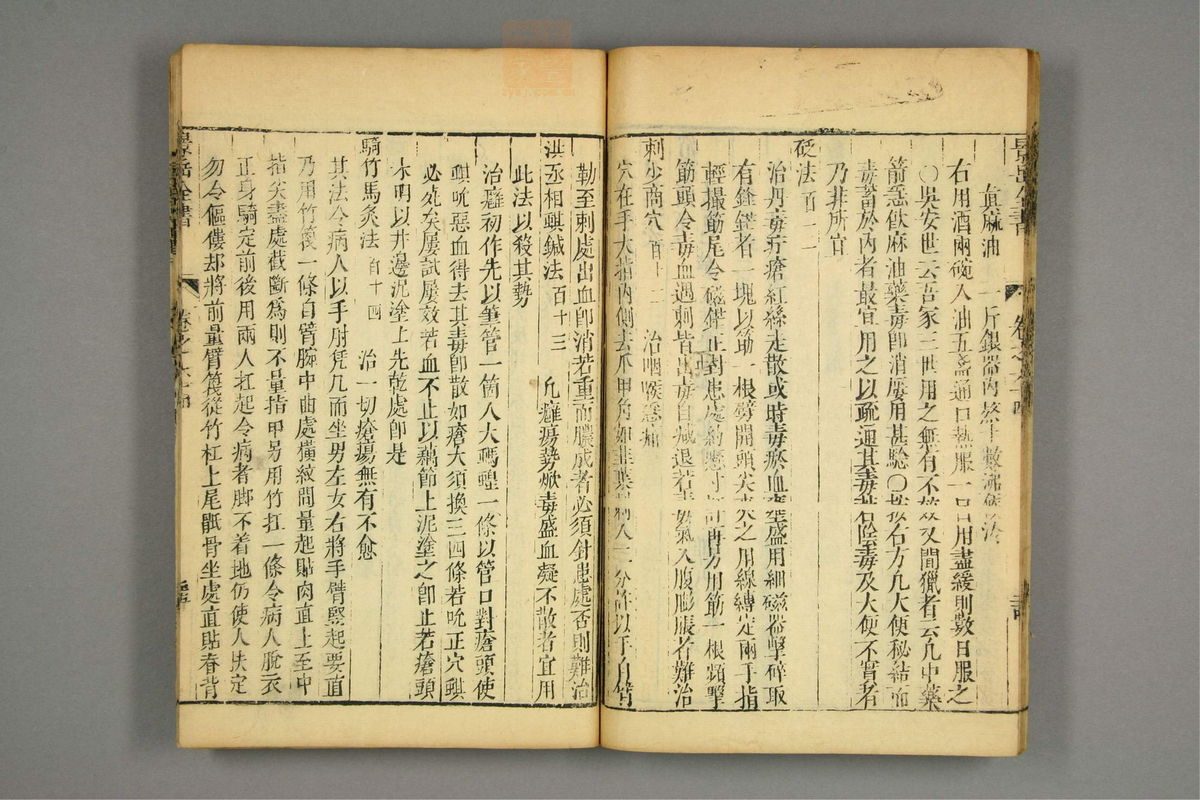 真麻油 一斤銀器內熬十數沸候冷
右用酒兩碗入油五盞通口熱服一日用盡緩則數日服之
○吳安世云吾家三世用之無有不效又聞獵者云凡中藥
箭急飲麻油藥毒即消屢用甚驗○按右方凡大便秘結而
毒蓄於內者最宜用之以疏通其毒若陰毒及大便不實者
乃非所宜
砭法 百十一
治丹毒疔瘡紅絲走散或時毒瘀血壅盛用細磁器擊碎取
有鋒鋩者一塊以筯一根劈開頭尖夾之用線縛定兩手指
輕撮筯尾令磁鋩正對患處約懸寸許再另用筯一根頻擊
筯頭令毒血遇刺皆出毒自減退若毒氣入腹膨脹者難治
刺少商穴 百十二 治咽喉急痛
穴在手大指內側去爪甲角如韭葉刺入二分許以手自臂
勒至刺處出血即消若重而膿成者必須針患處否則難治
洪丞相䗩鍼法 百十三 凡癰瘍勢焮毒盛血凝不散者宜用
此法以殺其勢
治癰初作先以筆管一箇入大螞蝗一條以管口對瘡頭使
䗩吮惡血得去其毒即散如瘡大須換三四條若吮正穴䗩
必死矣屢試屢效若血不止以藕節上泥塗之即止若瘡頭
未明以井邊泥塗上先乾處即是
騎竹馬灸法 百十四 治一切瘡瘍無有不愈
其法令病人以手肘凭几而坐男左女右將手臂竪起要直
乃用竹篾一條自臂腕中曲處橫紋間量起貼肉直上至中
指尖盡處截斷爲則不量指甲另用竹扛一條令病人脫衣
正身騎定前後用兩人扛起令病者脚不着地仍使人扶定
勿令傴僂却將前量臂篾從竹杠上尾骶骨坐處直貼脊背
景岳全書
卷之六十四